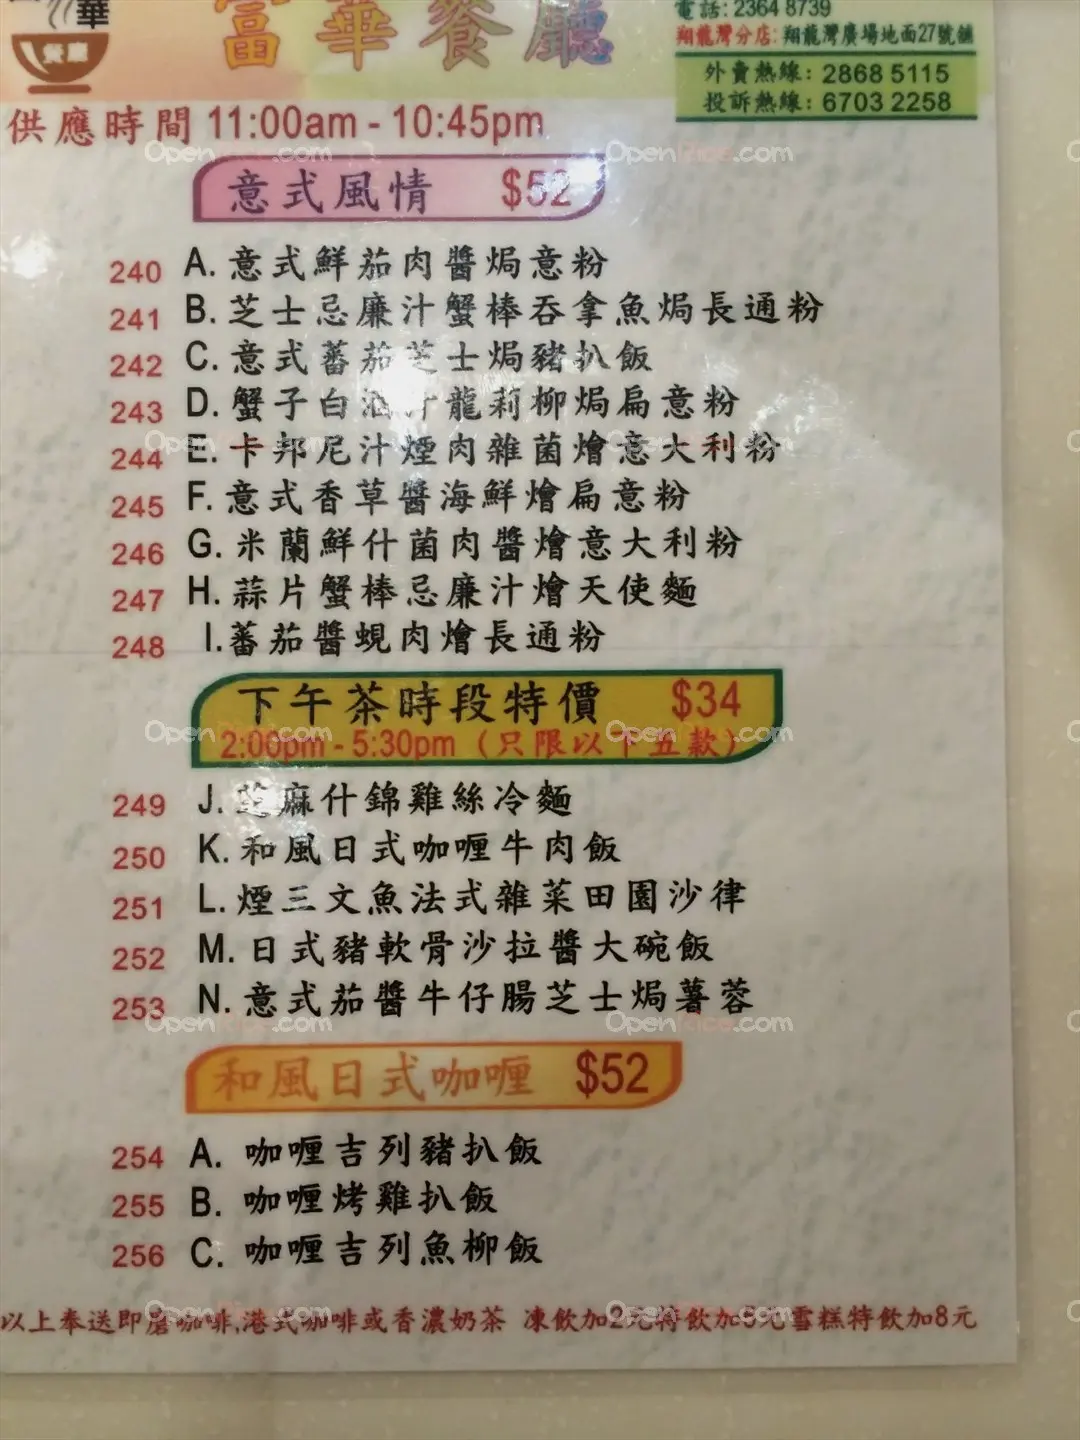 華
餐廳
富華餐廳
電話: 2364 8739
翔龍灣分店: 翔龍灣廣場地面27號舖
外賣熱線: 2868 5115
投訴熱線: 6703 2258
供應時間 11:00am - 10:45pm
意式風情 $52
240 A. 意式鮮茄肉醬焗意粉
241 B. 芝士忌廉汁蟹棒吞拿魚焗長通粉
242 C. 意式蕃茄芝士焗豬扒飯
243 D. 蟹子白酒汁龍莉柳焗扁意粉
244 E. 卡邦尼汁煙肉雜菌燴意大利粉
245 F. 意式香草醬海鮮燴扁意粉
246 G. 米蘭鮮什菌肉醬燴意大利粉
247 H. 蒜片蟹棒忌廉汁燴天使麵
248 I. 蕃茄醬蜆肉燴長通粉
下午茶時段特價 $34
2:00pm - 5:30pm (只限以下五款)
249 J. 芝麻什錦雞絲冷麵
250 K. 和風日式咖喱牛肉飯
251 L. 煙三文魚法式雜菜田園沙律
252 M. 日式豬軟骨沙拉醬大碗飯
253 N. 意式茄醬牛仔腸芝士焗薯蓉
和風日式咖喱 $52
254 A. 咖喱吉列豬扒飯
255 B. 咖喱烤雞扒飯
256 C. 咖喱吉列魚柳飯
以上奉送即磨咖啡,港式咖啡或香濃奶茶 凍飲加2元特飲加5元雪糕特飲加8元
OpenRice.com